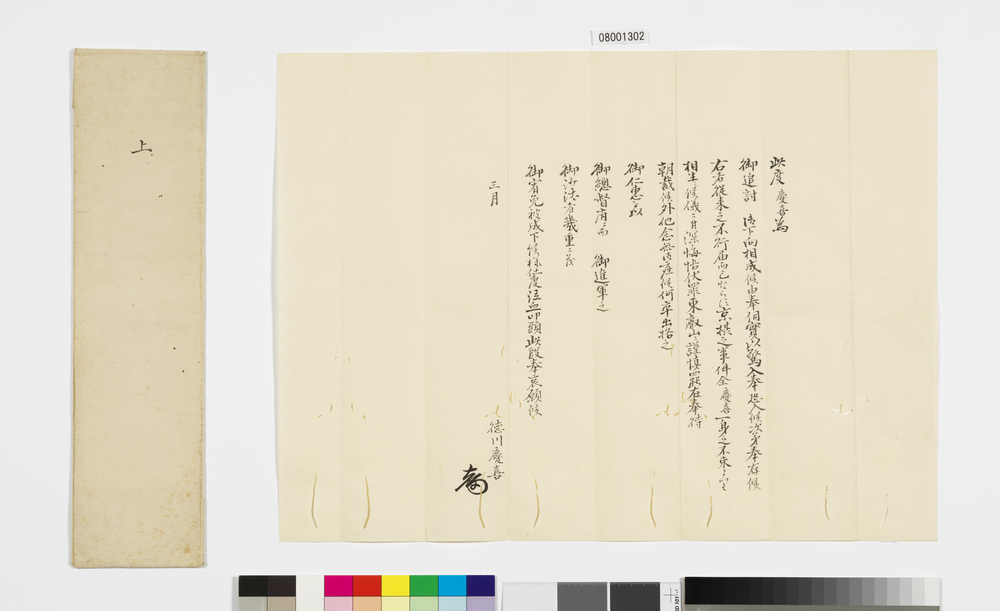 08001302
上
此度慶喜為
御追討 御下向相成候由奉伺實以驚入奉恐入候次第奉存候
右者従来之不行届而已ならす京摂之事件全慶喜一身之不束より
相生候儀ニ付深悔悟伏罪東叡山ニ謹慎罷在奉待
朝裁候外他念無御座候何卒出格之
御仁恵を以
御總督府ニ而 御進軍之
御沙汰者幾重ニ茂
御宥免被成下候様仕度泣血叩頭此段奉哀願候
三月
徳川慶喜